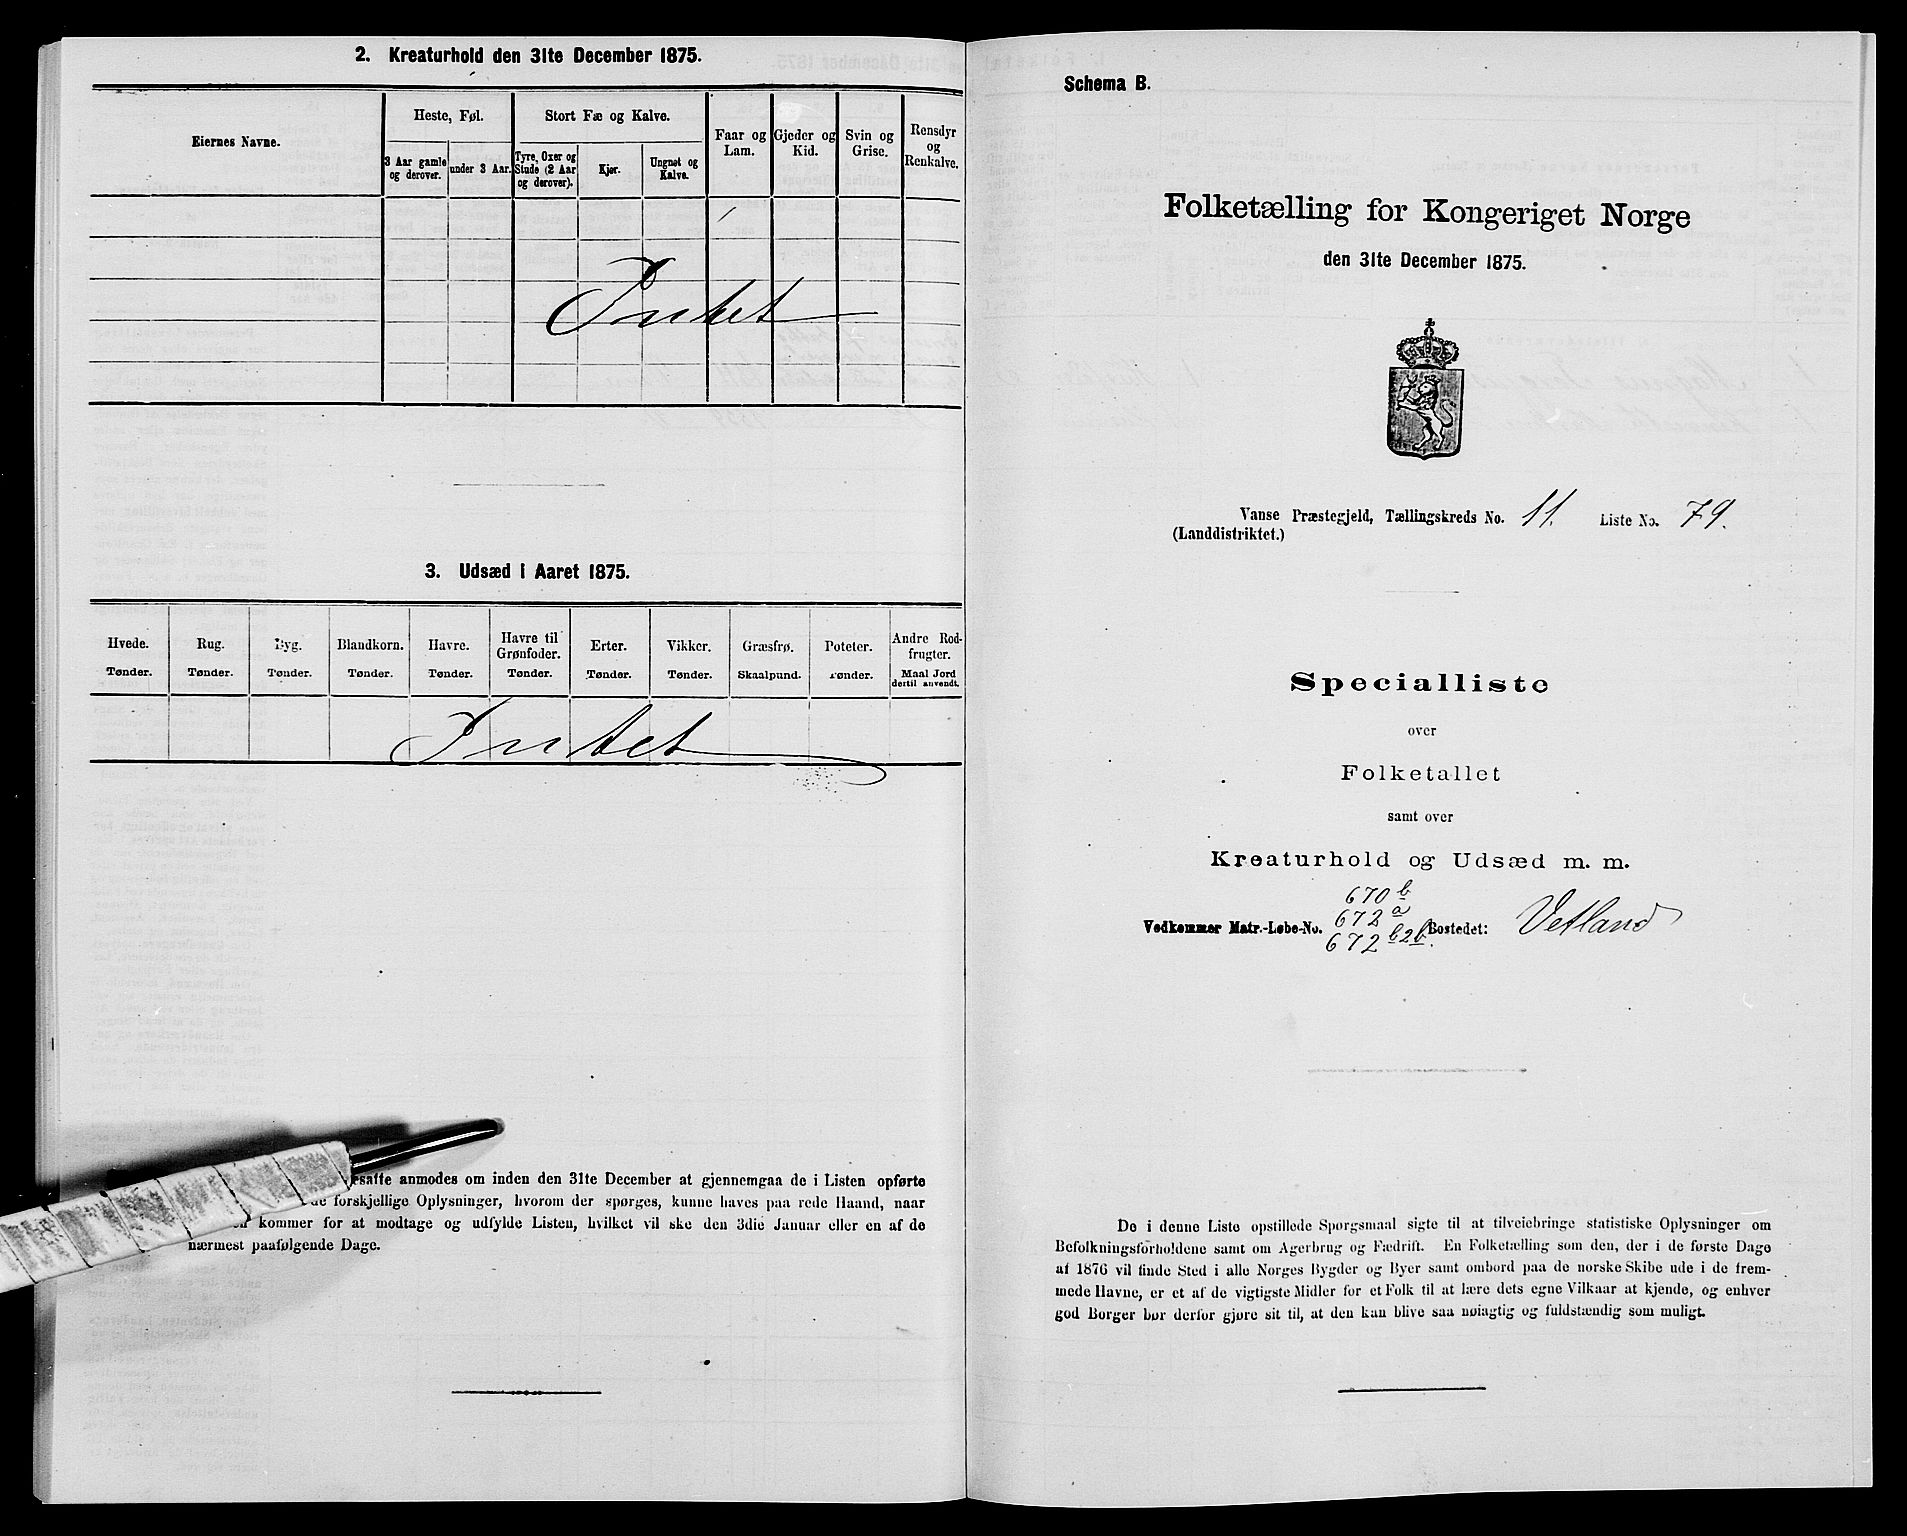 2. Kreaturhold den 31te December 1875.
Eiernes Navne.
Heste, Føl.
Stort Fæ og Kalve.
Faar og Lam.
Gjeder og Kid.
Svin og Grise.
Rensdyr og Renkalve.
3 Aar gamle og derover.
under 3 Aar.
Tyre, Oxer og Stude (2 Aar og derover).
Kjør.
Ungnøt og Kalve.
Intet
3. Udsæd i Aaret 1875.
Hvede. Rug. Byg. Blandkorn. Havre. Havre til Grønfoder. Erter. Vikker. Græsfrø. Poteter. Andre Rodfrugter.
Tønder. Tønder. Tønder. Tønder. Tønder. Tønder. Tønder. Tønder. Skaalpund. Tønder. Maal Jord dertil anvendt.
Intet
anmodes om inden den 31te December at gjennemgaa de i Listen opførte
forskjellige Oplysninger, hvorom der spørges, kunne haves paa rede Haand, naar
kommer for at modtage og udfylde Listen, hvilket vil ske den 3die Januar eller en af de
nærmest paafølgende Dage.
Schema B.
Folketælling for Kongeriget Norge
den 31te December 1875.
Vanse Præstegjeld, Tællingskreds No. 11. Liste No. 79.
(Landdistriktet.)
Specialliste
over
Folketallet
samt over
Kreaturhold og Udsæd m. m.
670 b
672 a
Vedkommer Matr.-Løbe-No. 672 b2b. Bostedet: Vetland
De i denne Liste opstillede Spørgsmaal sigte til at tilveiebringe statistiske Oplysninger om
Befolkningsforholdene samt om Agerbrug og Fædrift. En Folketælling som den, der i de første Dage
af 1876 vil finde Sted i alle Norges Bygder og Byer samt ombord paa de norske Skibe ude i de frem-
mede Havne, er et af de vigtigste Midler for et Folk til at lære dets egne Vilkaar at kjende, og enhver
god Borger bør derfor gjøre sit til, at den kan blive saa nøiagtig og fuldstændig som muligt.